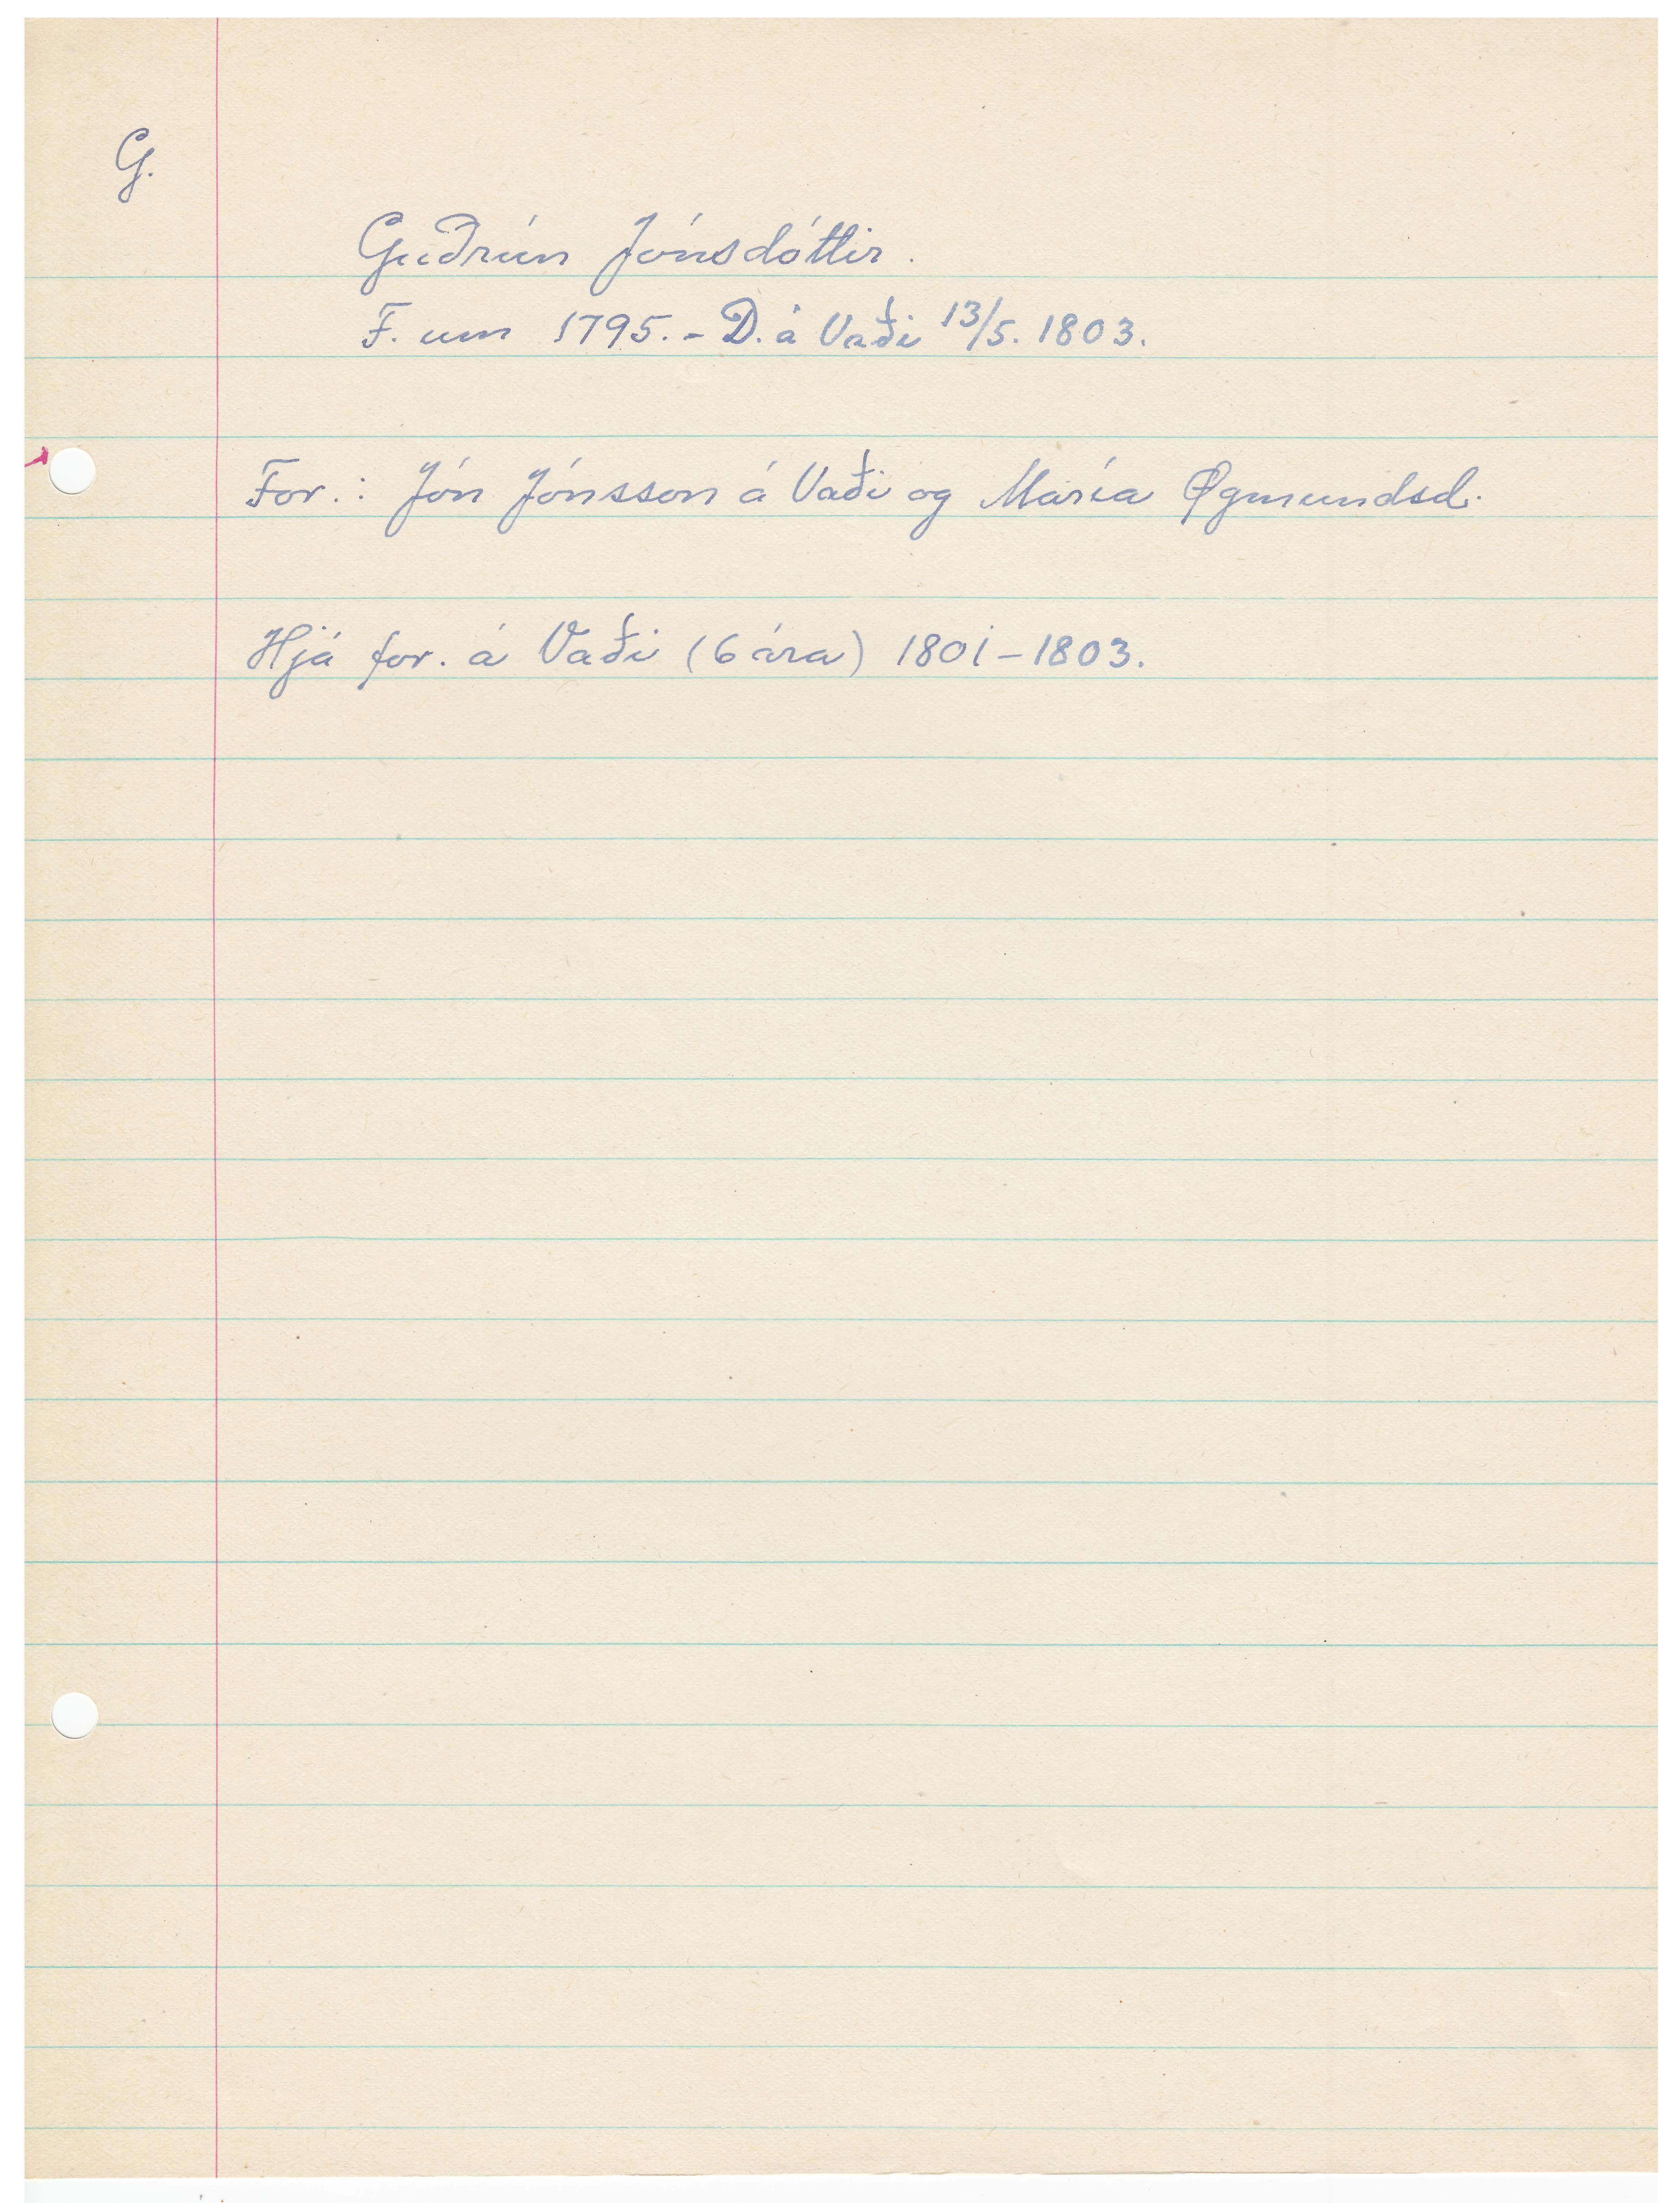 G.
Guðrún Jónsdóttir.
F. um 1795. - D. á Vaði 13/5. 1803.
For.: Jón Jónsson á Vaði og María Øgmundsd.
Hjá for. á Vaði (6 ára) 1801-1803.